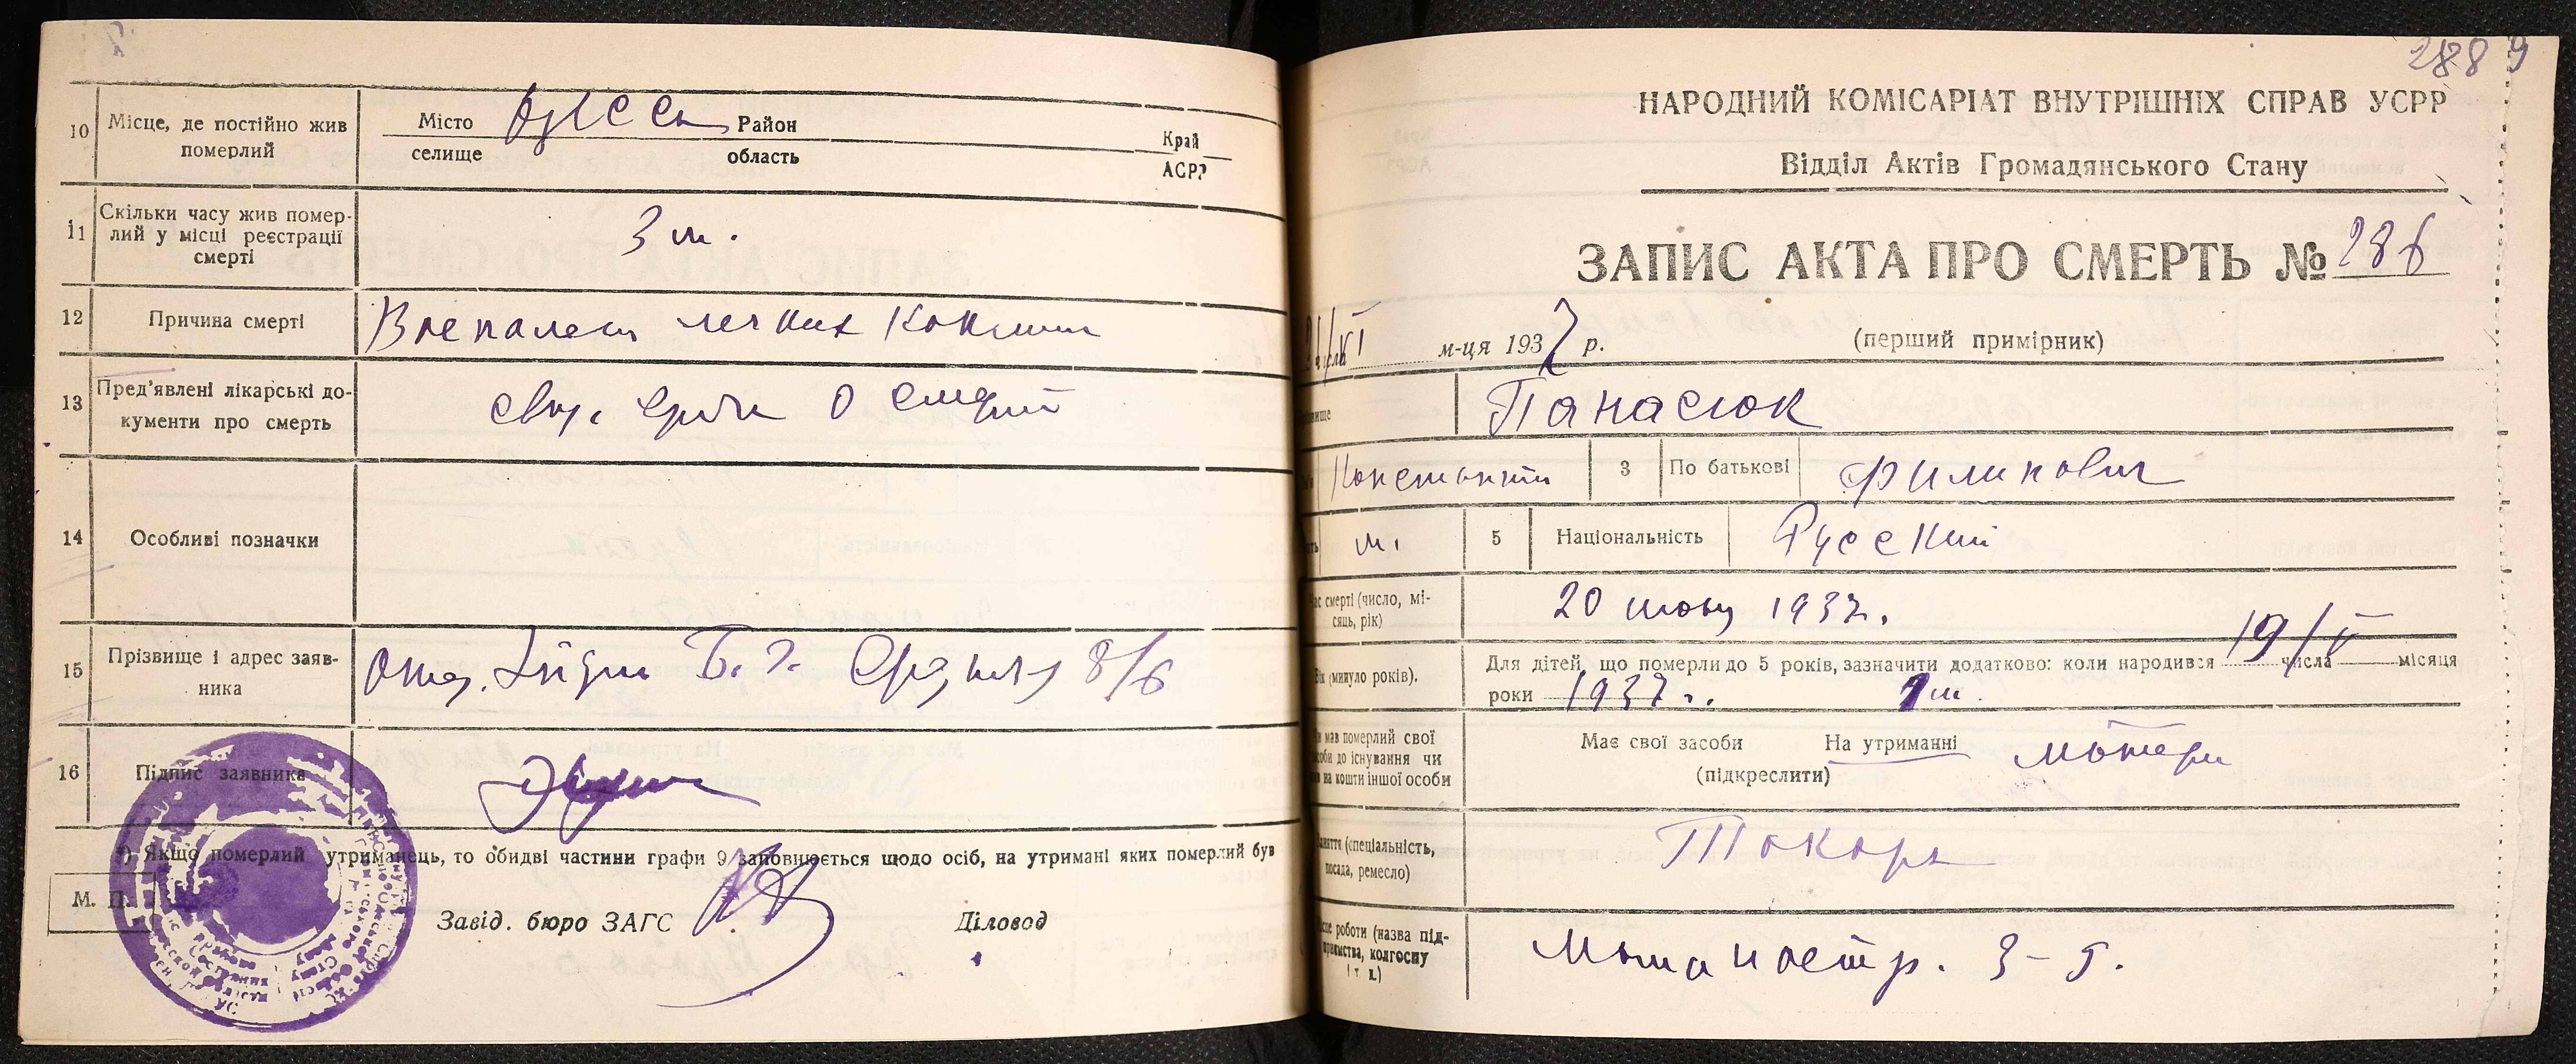 10 Місце, де постійно жив померлий
Місто Одесса Район Край
селище область АСРР
11 Скільки часу жив помер-
лий у місці реєстрації
смерті
3 м.
12 Причина смерті
легких
13 Пред'явлені лікарські до-
кументи про смерть
о смерти
14 Особливі позначки
15 Прізвище і адрес заяв-
ника
8/6
16 Підпис заявника
*) Якщо померлий утриманець, то обидві частини графи 9 заповнюється щодо осіб, на утримані яких померлий був
М. П.
Завід. бюро ЗАГС Діловод
288 9
НАРОДНИЙ КОМІСАРІАТ ВНУТРІШНІХ СПРАВ УСРР
Відділ Актів Громадянського Стану
ЗАПИС АКТА ПРО СМЕРТЬ № 286
м-ця 1937 р. (перший примірник)
Панасюк
Константин 3 По батькові Филипович
м. 5 Національність Русский
час смерті (число, мі-
сяць, рік)
20 июня 1937.
Вік (минуло років).
Для дітей, що померли до 5 років, зазначити додатково: коли народився 19/V числа місяця
роки 1937 г. 1 м.
Чи мав померлий свої
засоби до існування чи
на кошти іншої особи
Має свої засоби На утриманні матери
(підкреслити)
Заняття (спеціальність,
посада, ремесло)
Токарь
роботи (назва під-
приємства, колгоспу
і т. і.)
Машиностр. з-д.